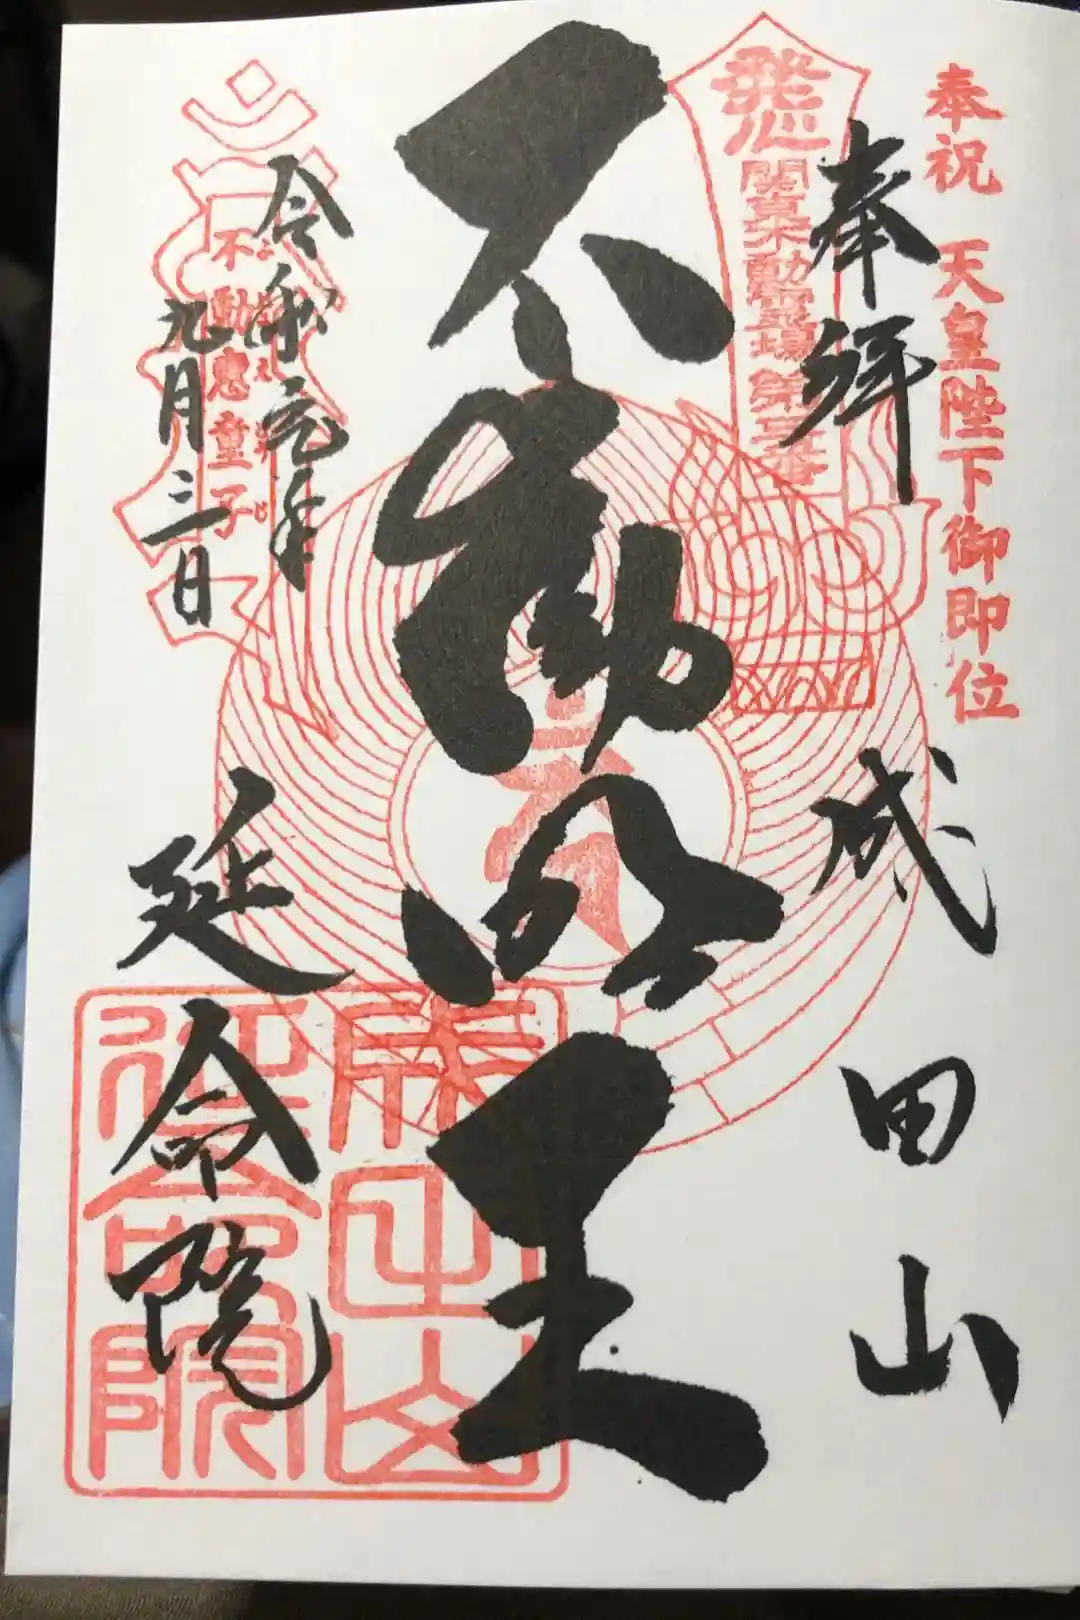 奉祝　天皇陛下御即位
奉拝　成田山
発心
関東不動霊場 第三番
不動明王
令和元年
九月三日
不動恵童子
延命院
成田山
延命院